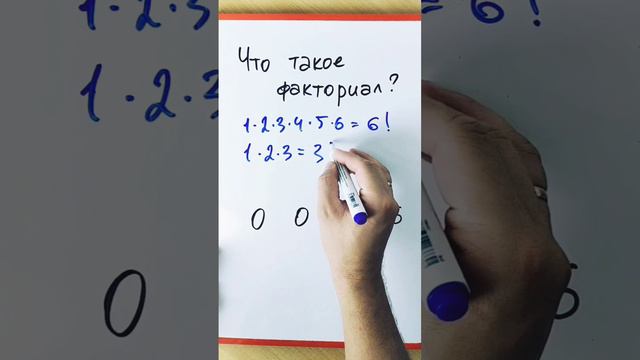 Что такое
факториал?
1·2·3·4·5·6=6!
1·2·3=3
0 0